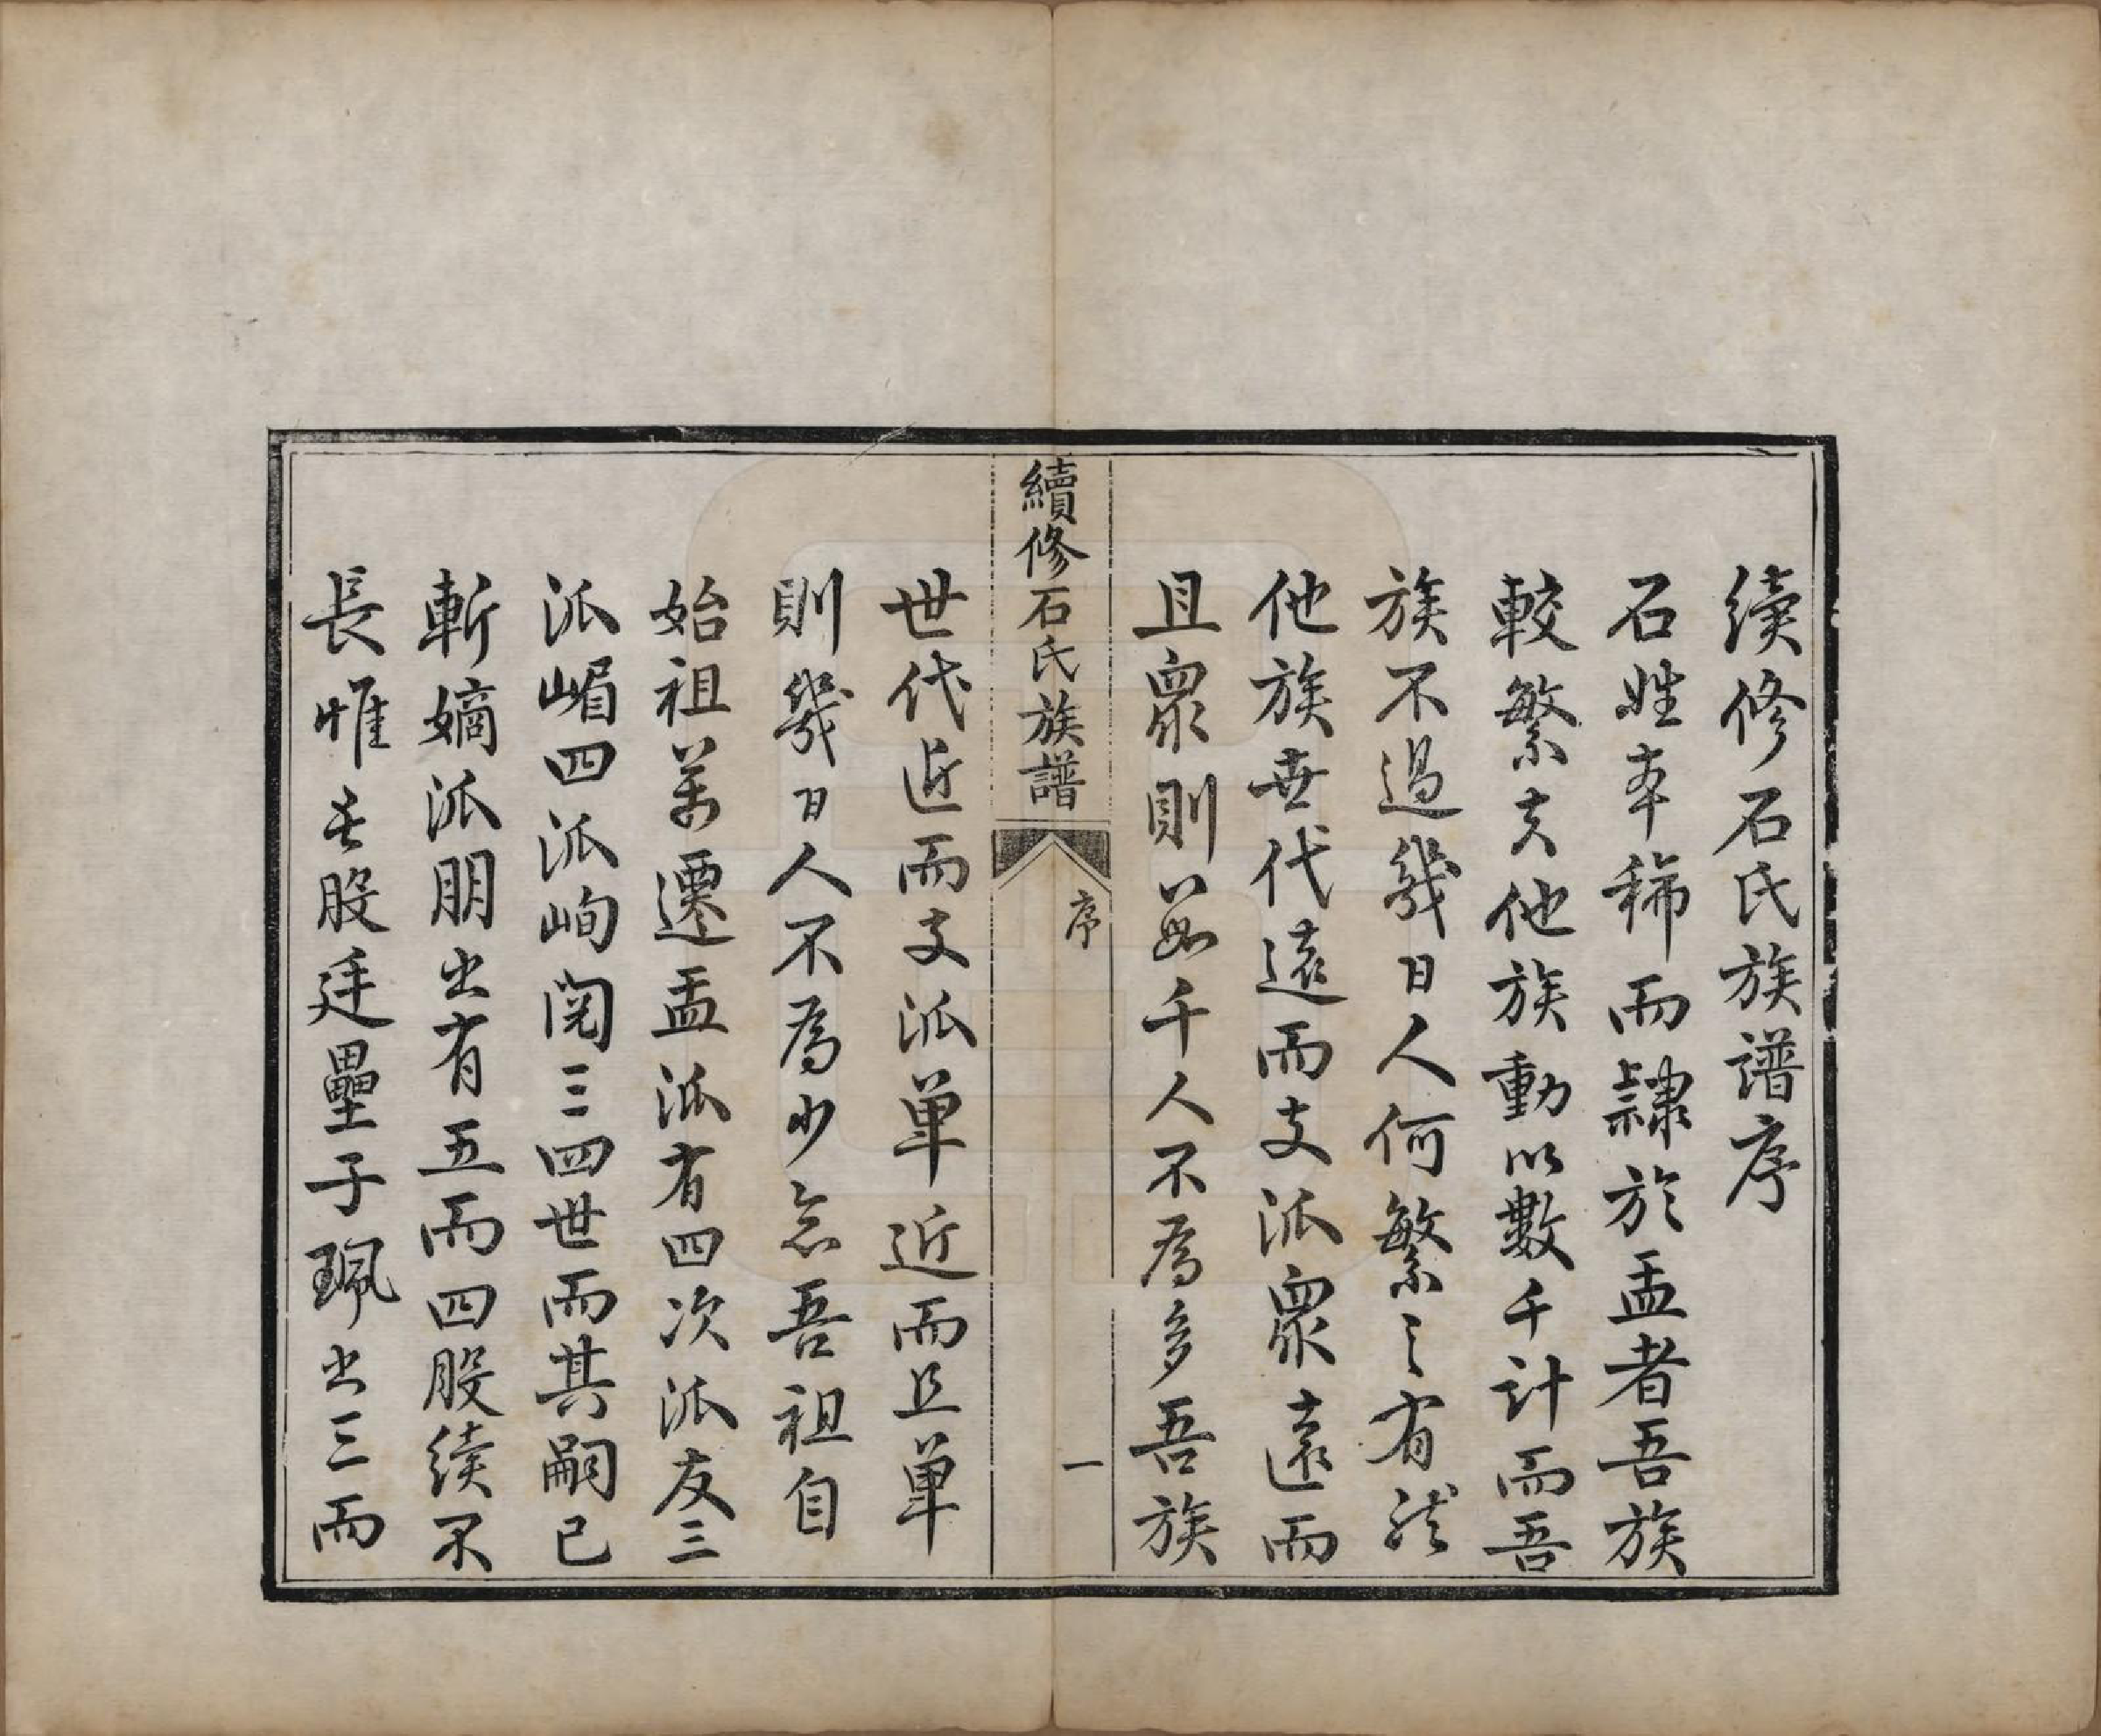 續修石氏族譜序
石姓本稀而隸於盂者吾族
較繁夫他族動以數千計而吾
族不過幾日人何繁之有然
他族世代遠而支派衆遠而
且衆則雖千人不為多吾族
續修石氏族譜
序
一
世代近而支派单近而且单
則幾日人不為少念吾祖自
始祖美遷盂派有四次派友三
派嵋四派峋閱三四世而其嗣已
斬嫡派朋出有五而四股续不
長惟長股廷壘子珮出三而